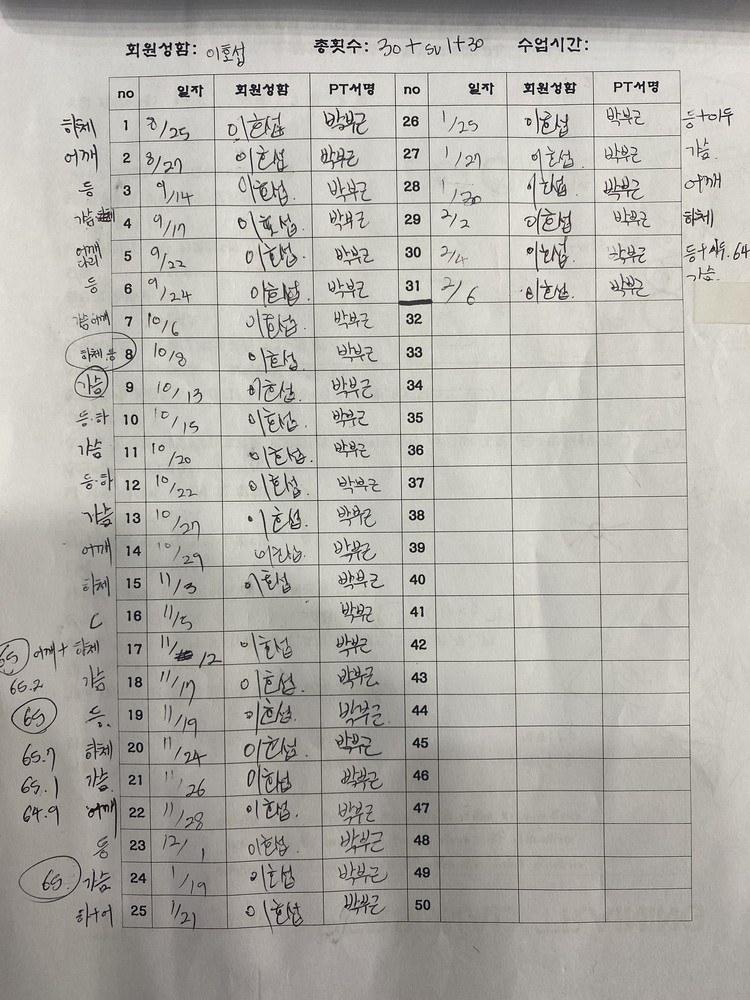 회원성함: 이호섭 총횟수: 30+SV1+30 수업시간:
no 일자 회원성함 PT서명 no 일자 회원성함 PT서명
하체 1 8/25 이호섭 박부근 26 1/25 이호섭 박부근 등+이두
어깨 2 8/27 이호섭 박부근 27 1/27 이호섭 박부근 가슴
등 3 9/14 이호섭 박부근 28 1/30 이호섭 박부근 어깨
가슴 4 9/17 이호섭 박부근 29 2/2 이호섭 박부근 하체
어깨 다리 5 9/22 이호섭 박부근 30 2/4 이호섭 박부근 등+이두. 64
등 6 9/24 이호섭 박부근 31 2/6 이호섭 박부근 가슴
가슴어깨 7 10/6 이호섭 박부근 32
하체.등 8 10/8 이호섭 박부근 33
가슴 9 10/13 이호섭 박부근 34
등.하 10 10/15 이호섭 박부근 35
가슴 11 10/20 이호섭 박부근 36
등.하 12 10/22 이호섭 박부근 37
가슴 13 10/27 이호섭 박부근 38
어깨 14 10/29 이호섭 박부근 39
하체 15 11/3 이호섭 박부근 40
C 16 11/5 박부근 41
65 어깨+하체 17 11/12 이호섭 박부근 42
65.2 가슴 18 11/17 이호섭 박부근 43
65 등. 19 11/19 이호섭 박부근 44
65.7 하체 20 11/24 이호섭 박부근 45
65.1 가슴 21 11/26 이호섭 박부근 46
64.9 어깨 22 11/28 이호섭 박부근 47
등 23 12/1 이호섭 박부근 48
65. 가슴 24 1/19 이호섭 박부근 49
하+어 25 1/21 이호섭 박부근 50